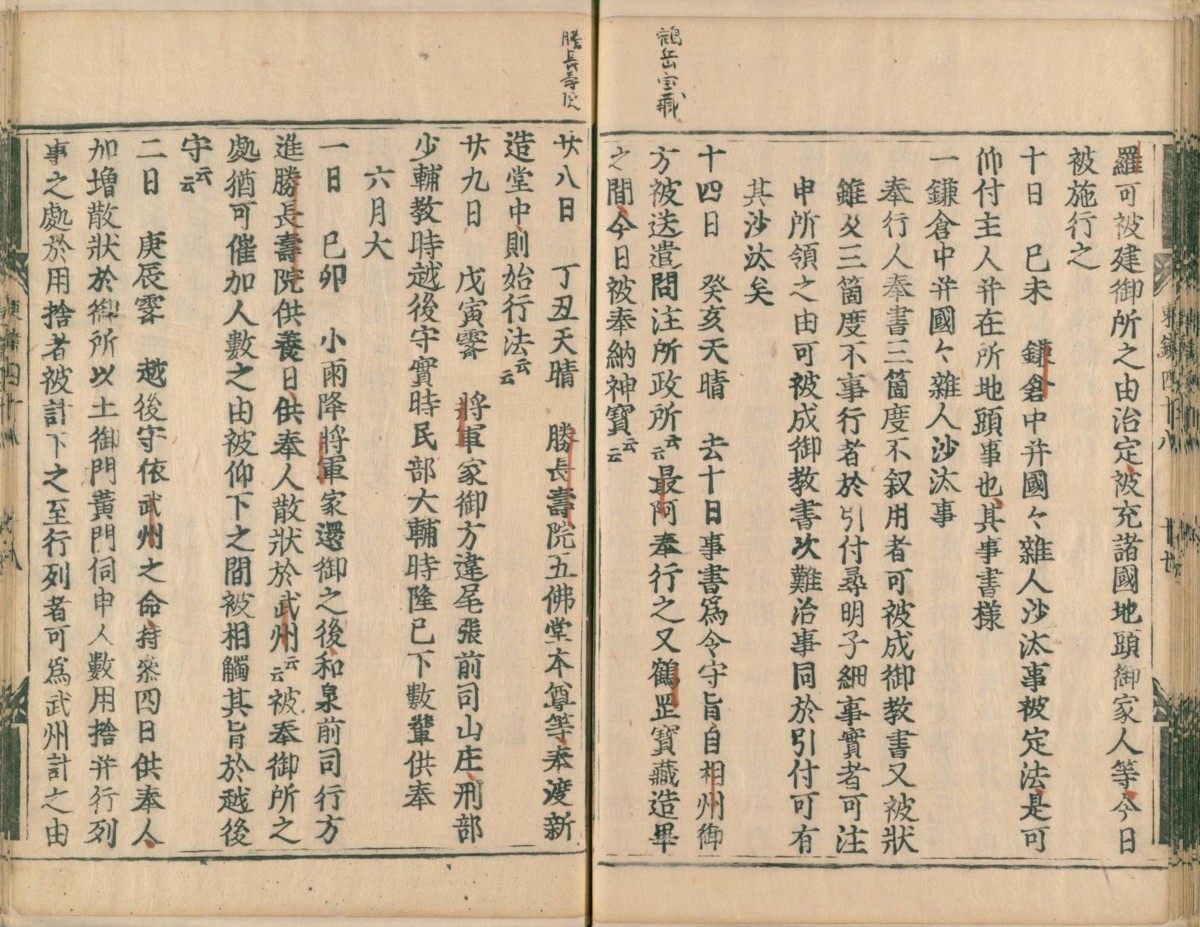 鶴岳宝蔵
羅可被建御所之由治定被充諸國地頭御家人等今日
被施行之
十日　已未　鎌倉中并國々雜人沙汰事被定法是可
仰付主人并在所地頭事也其事書樣
一鎌倉中并國々雜人沙汰事
奉行人奉書三箇度不叙用者可被成御教書又被狀
雖及三箇度不事行者於引付尋明子細事實者可注
申所領之由可被成御教書次難治事同於引付可有
其沙汰矣
十四日　癸亥天晴　去十日事書爲令守旨自相州御
方被送遣問注所政所云云最阿奉行之又鶴罡寶藏造畢
之間今日被奉納神寶云云
勝長寿院
廿八日　丁丑天晴　勝長壽院五佛堂本尊等奉渡新
造堂中則始行法云云
廿九日　戊寅霽　將軍家御方違尾張前司山庄刑部
少輔教時越後守實時民部大輔時隆已下數輩供奉
六月大
一日　已卯　小雨降將軍家還御之後和泉前司行方
進勝長壽院供養日供奉人散狀於武州云云被奉御所之
處猶可催加人數之由被仰下之間被相觸其旨於越後
守云云
二日　庚辰霽　越後守依武州之命持參四日供奉人
加増散狀於御所以土御門黄門伺申人數用捨并行列
事之處於用捨者被計下之至行列者可爲武州計之由
東鑑四十八